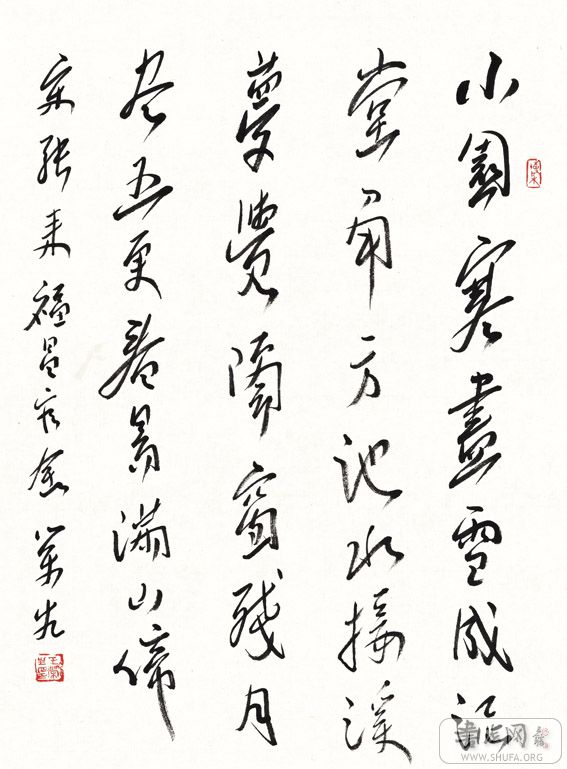 小園寒盡雪成泥
堂角方池水接溪
夢覺隔窗殘月
尽五更春鳥满山啼
宋张耒福昌官舍
书法网
WWW.SHUFA.ORG